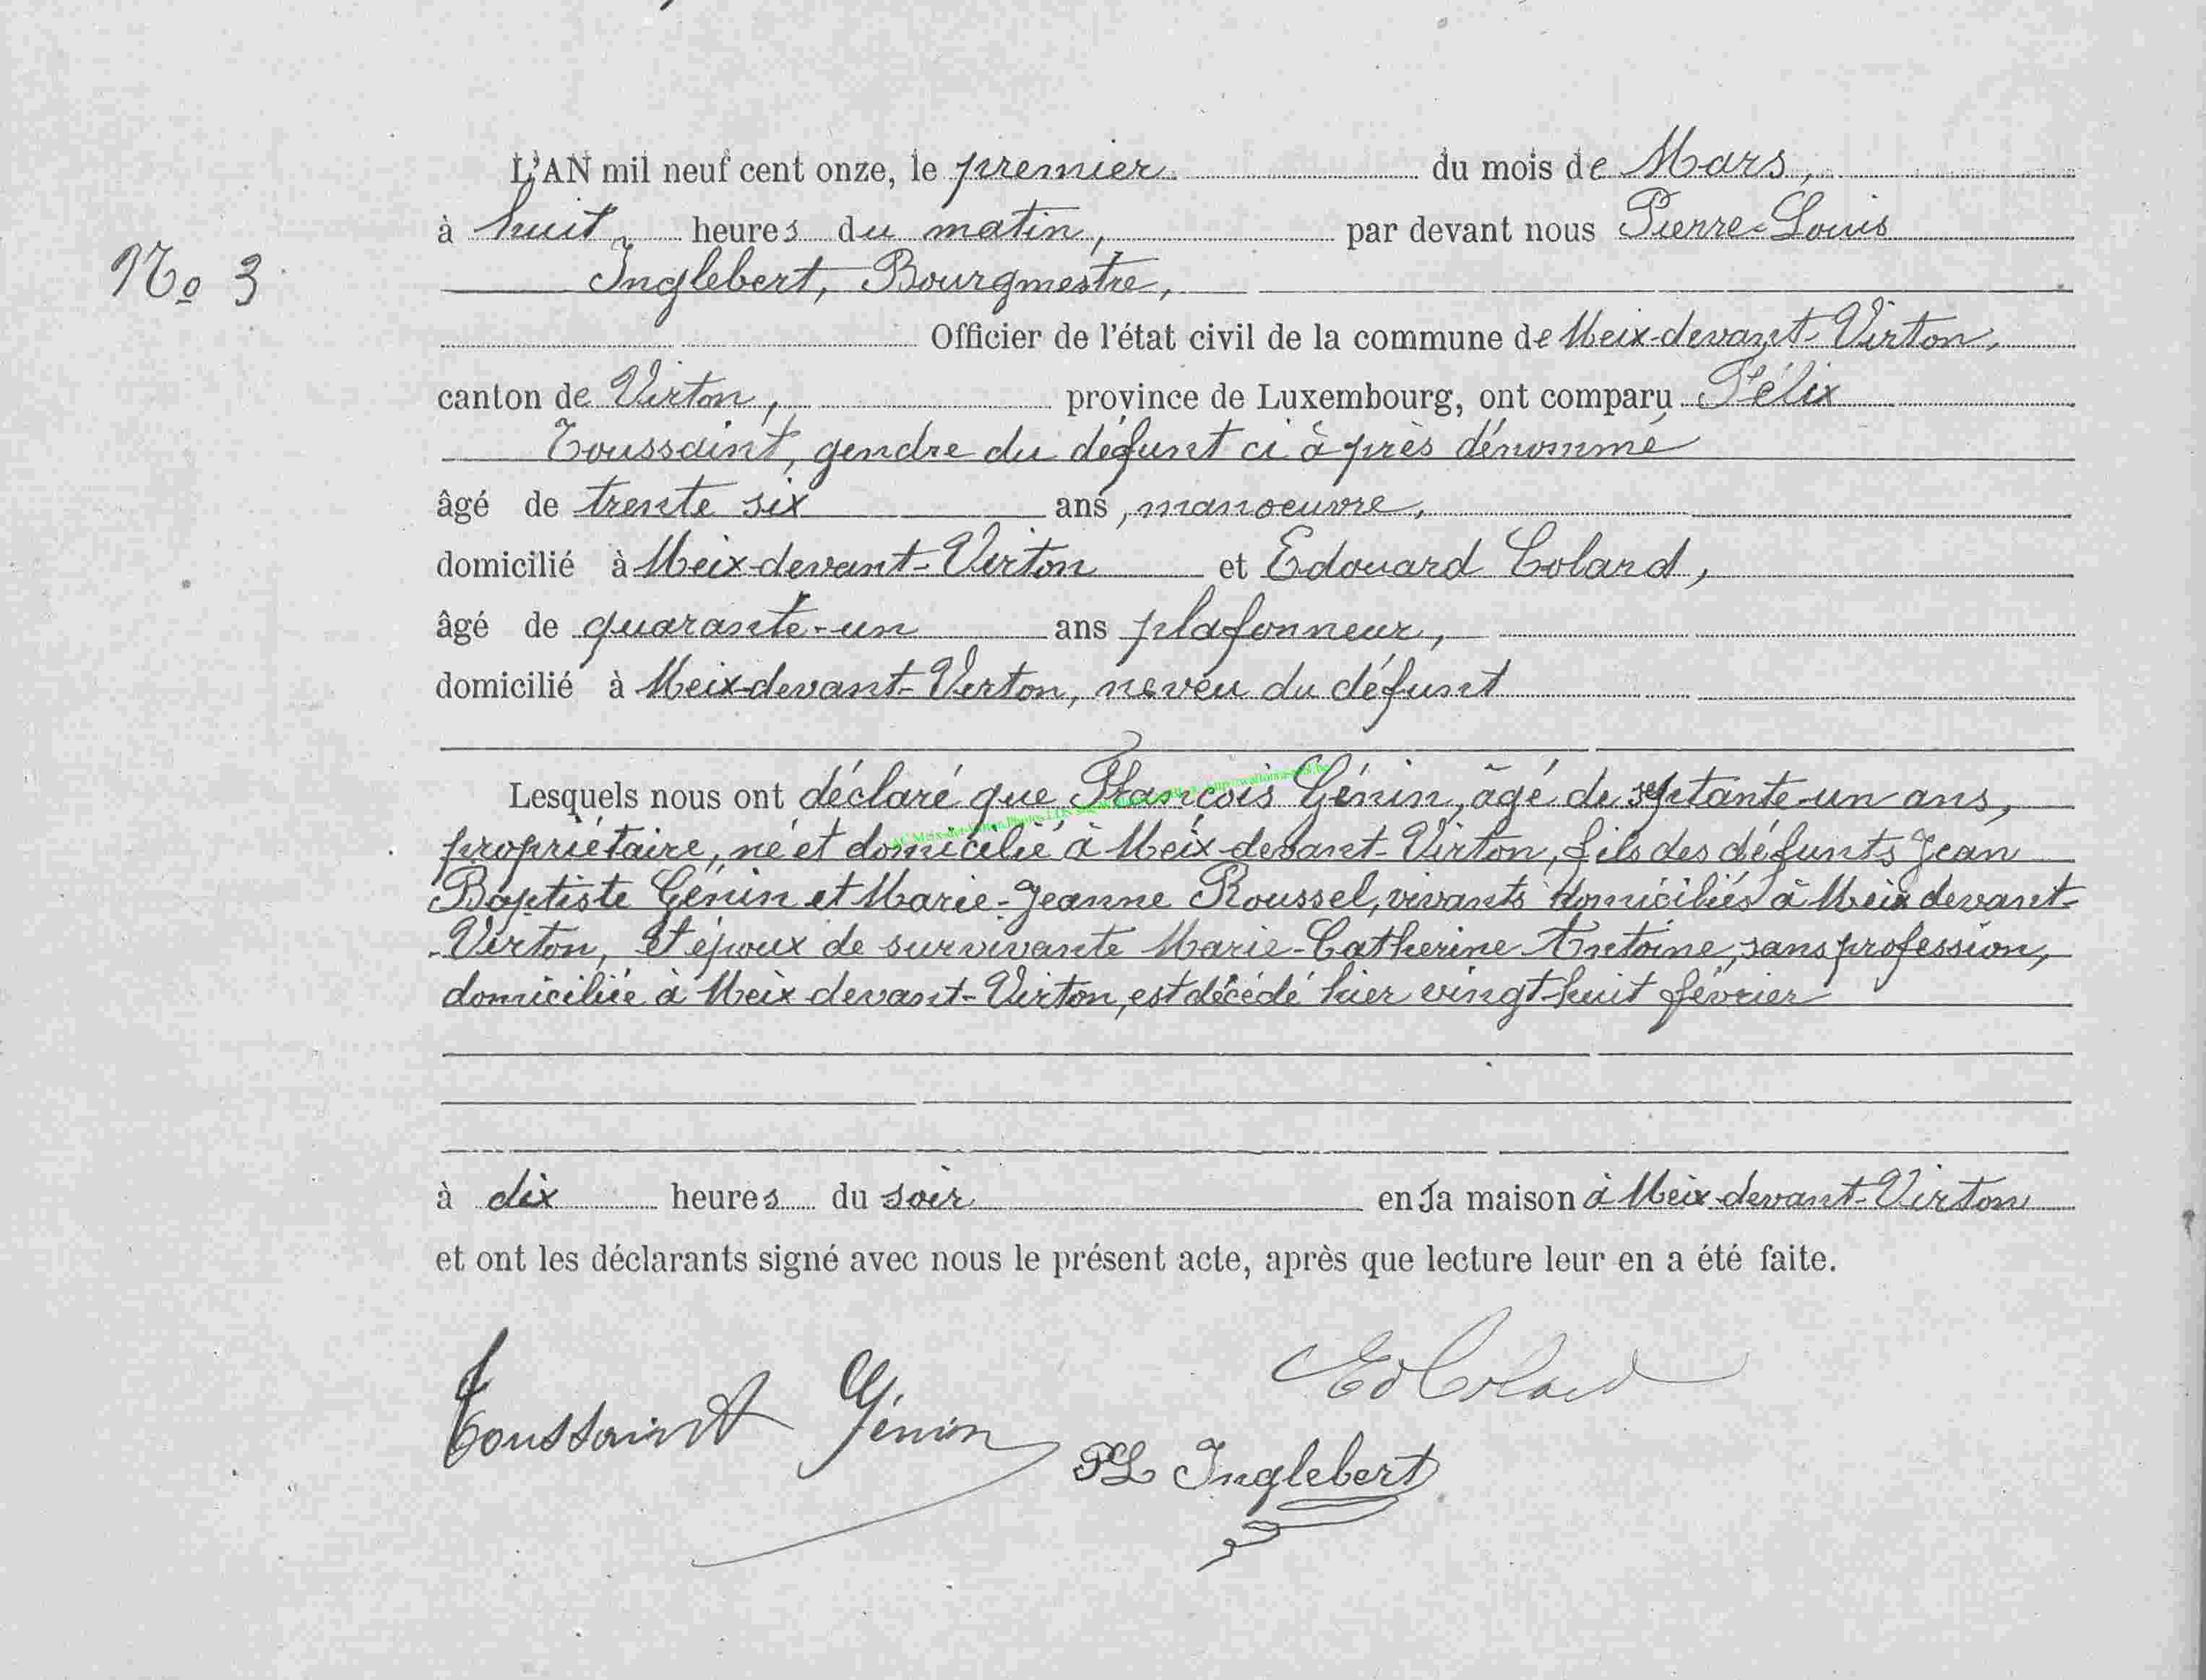 L'AN mil neuf cent onze, le premier du mois de Mars,
à huit heures du matin, par devant nous Pierre-Louis
No 3
Inglebert, Bourgmestre,
Officier de l'état civil de la commune de Meix-devant-Virton,
canton de Virton, province de Luxembourg, ont comparu Félix
Toussaint, gendre du défunt ci à près dénommé
âgé de trente six ans, manoeuvre,
domicilié à Meix-devant-Virton et Edouard Coland,
âgé de quarante-un ans plafonneur,
domicilié à Meix-devant-Virton, neveu du défunt
Lesquels nous ont déclaré que François Génin, âgé de septante-un ans,
propriétaire, né et domicilié à Meix-devant-Virton, fils des défunts Jean
Baptiste Génin et Marie-Jeanne Roussel, vivants domiciliés à Meix devant-
-Virton, Et époux de survivante Marie-Catherine Antoine, sans profession,
domiciliée à Meix-devant-Virton, est décédé hier vingt-huit février
à dix heures du soir en sa maison à Meix-devant-Virton
et ont les déclarants signé avec nous le présent acte, après que lecture leur en a été faite.
Ed Colard
Toussaint Génin
PL Inglebert